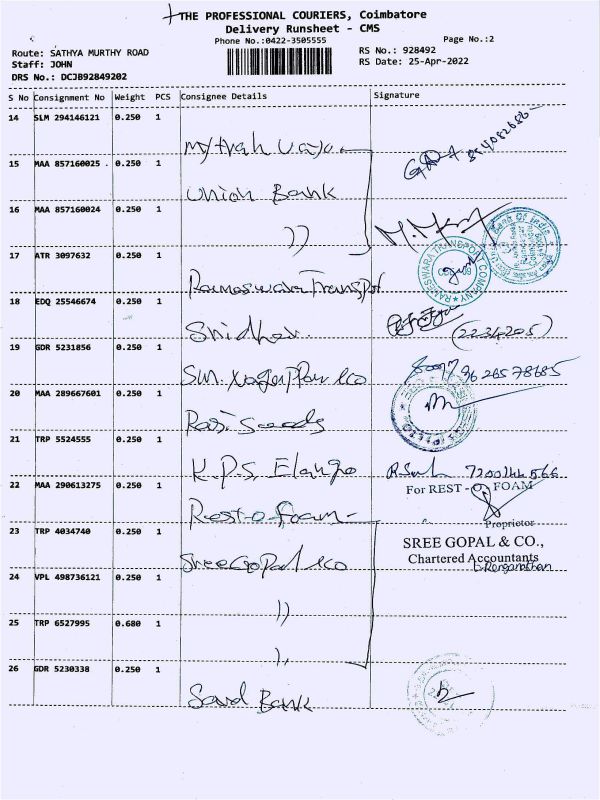 THE PROFESSIONAL COURIERS, Coimbatore
Delivery Runsheet - CMS
Phone No.:0422-3505555
Page No.:2
Route: SATHYA MURTHY ROAD
RS No.: 928492
Staff: JOHN
RS Date: 25-Apr-2022
DRS No.: DCJB92849202
S No Consignment No Weight PCS Consignee Details Signature
14 SLM 294146121 0.250 1
15 MAA 857160025 0.250 1
Union Bank
16 MAA 857160024 0.250 1
))
M.
Bank Of India
17 ATR 3097632 0.250 1
Rameswara Transpot
RAMESWARA TRANSPORT COMPANY
18 EDQ 25546674 0.250 1
Sridher
19 GDR 5231856 0.250 1
20 MAA 289667601 0.250 1
Rasi Seeds
21 TRP 5524555 0.250 1
K.P.S. Elango
22 MAA 290613275 0.250 1
Rest-o-foam-
For REST-O-FOAM
Proprietor
23 TRP 4034740 0.250 1
Sree Gopal &co
SREE GOPAL & CO.,
Chartered Accountants
24 VPL 498736121 0.250 1
))
25 TRP 6527995 0.680 1
),
26 GDR 5230338 0.250 1
Bank